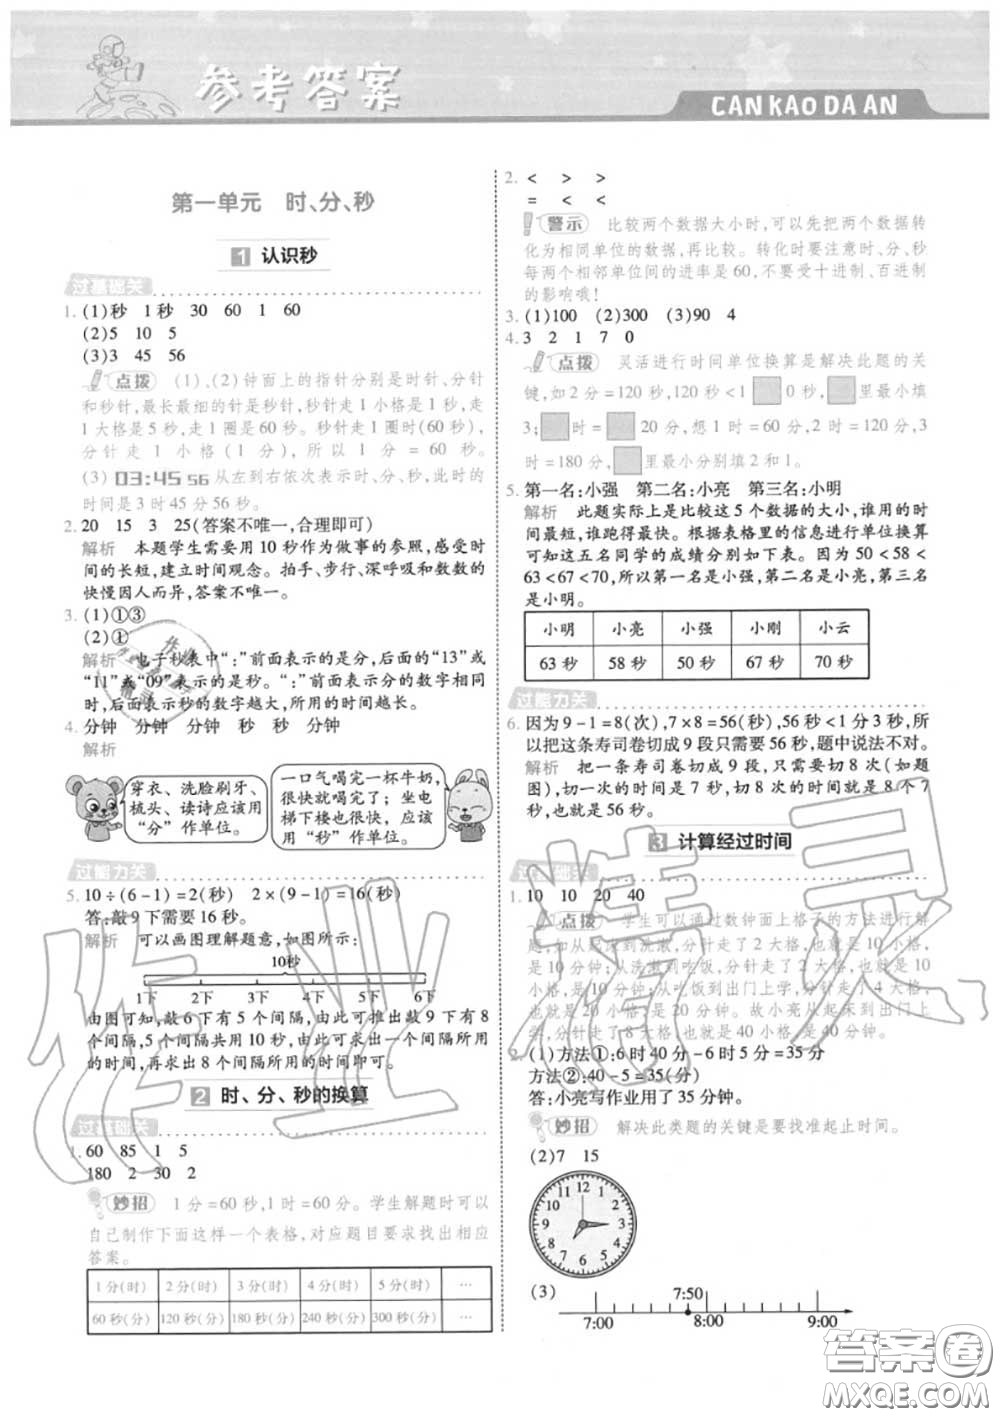 参考答案
CANKAODAAN
第一单元 时、分、秒
1 认识秒
过基础关
1. (1)秒 1秒 30 60 1 60
(2)5 10 5
(3)3 45 56
点拨 (1)、(2)钟面上的指针分别是时针、分针
和秒针,最长最细的针是秒针,秒针走1小格是1秒,走
1大格是5秒,走1圈是60秒。秒针走1圈时(60秒),
分针走1小格(1分),所以1分=60秒。
(3) 03:45 56 从左到右依次表示时、分、秒,此时的
时间是3时45分56秒。
2. 20 15 3 25(答案不唯一,合理即可)
解析 本题学生需要用10秒作为做事的参照,感受时
间的长短,建立时间观念。拍手、步行、深呼吸和数数的
快慢因人而异,答案不唯一。
3. (1)①③
(2)①
解析 电子秒表中“:”前面表示的是分,后面的“13”或
“11”或“09”表示的是秒。“:”前面表示分的数字相同
时,后面秒的数字越大,所用的时间越长。
4. 分钟 分钟 分钟 秒 秒 分钟
解析
穿衣、洗脸刷牙、
梳头、读诗应该用
“分”作单位。
一口气喝完一杯牛奶,
很快就喝完了;坐电
梯下楼也很快,应该
用“秒”作单位。
过能力关
5. 10÷(6-1)=2(秒) 2×(9-1)=16(秒)
答:敲9下需要16秒。
解析 可以画图理解题意,如图所示:
10秒
1下 2下 3下 4下 5下 6下
由图可知,敲6下有5个间隔,由此可推出敲9下有8
个间隔,5个间隔共用10秒,由此可求出一个间隔所用
的时间,再求出8个间隔所用的时间即可。
2 时、分、秒的换算
过基础关
1. 60 85 1 5
180 2 30 2
妙招 1分=60秒,1时=60分。学生解题时可以
自己制作下面这样一个表格,对应题目要求找出相应
答案。
1分(时) 2分(时) 3分(时) 4分(时) 5分(时) …
60秒(分) 120秒(分) 180秒(分) 240秒(分) 300秒(分) …
2. < > >
= < <
警示 比较两个数据大小时,可以先把两个数据转
化为相同单位的数据,再比较。转化时要注意时、分、秒
每两个相邻单位间的进率是60,不要受十进制、百进制
的影响哦!
3. (1)100 (2)300 (3)90 4
4. 3 2 1 7 0
点拨 灵活进行时间单位换算是解决此题的关
键,如2分=120秒,120秒<1 0秒, 里最小填
3; 时= 20分,想1时=60分,2时=120分,3
时=180分, 里最小分别填2和1。
5. 第一名:小强 第二名:小亮 第三名:小明
解析 此题实际上是比较这5个数据的大小,谁用的时
间最短,谁跑得最快。根据表格里的信息进行单位换算
可知这五名同学的成绩分别如下表。因为50<58<
63<67<70,所以第一名是小强,第二名是小亮,第三名
是小明。
小明 小亮 小强 小刚 小云
63秒 58秒 50秒 67秒 70秒
过能力关
6. 因为9-1=8(次),7×8=56(秒),56秒<1分3秒,所
以把这条寿司卷切成9段只需要56秒,题中说法不对。
解析 把一条寿司卷切成9段,只要切8次(如题
图),切一次的时间是7秒,切8次的时间就是8个7
秒,也就是56秒。
3 计算经过时间
过基础关
1. 10 10 20 40
点拨 学生可以通过数钟面上格子的方法进行解
题,如从起床到洗漱,分针走了2大格,也就是10小格,
是10分钟;从洗漱到吃饭,分针走了2大格,也就是10
小格,是10分钟;从吃饭到出门上学,分针走了4大格,
也就是20小格,是20分钟;故小亮从起床到出门上
学,分针走了8大格,也就是40小格,是40分钟。
2. (1)方法①:6时40分-6时5分=35分
方法②:40-5=35(分)
答:小亮写作业用了35分钟。
妙招 解决此类题的关键是要找准起止时间。
(2)7 15
12 1 2 3 4 5 6 7 8 9 10 11
(3)
7:50
7:00 8:00 9:00
作业精灵
答案圈
MXQE.COM